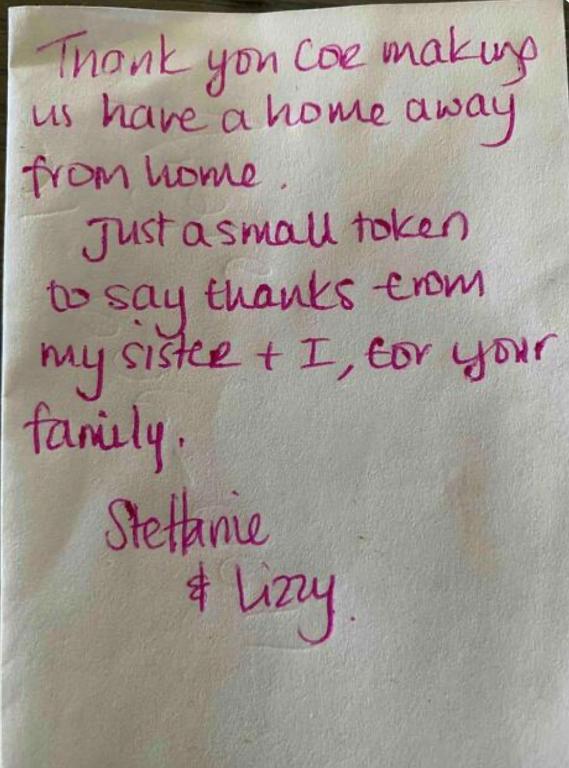 Thank you for making
us have a home away
from home.
Just a small token
to say thanks from
my sister + I, for your
family.
Steffanie
& Lizzy.